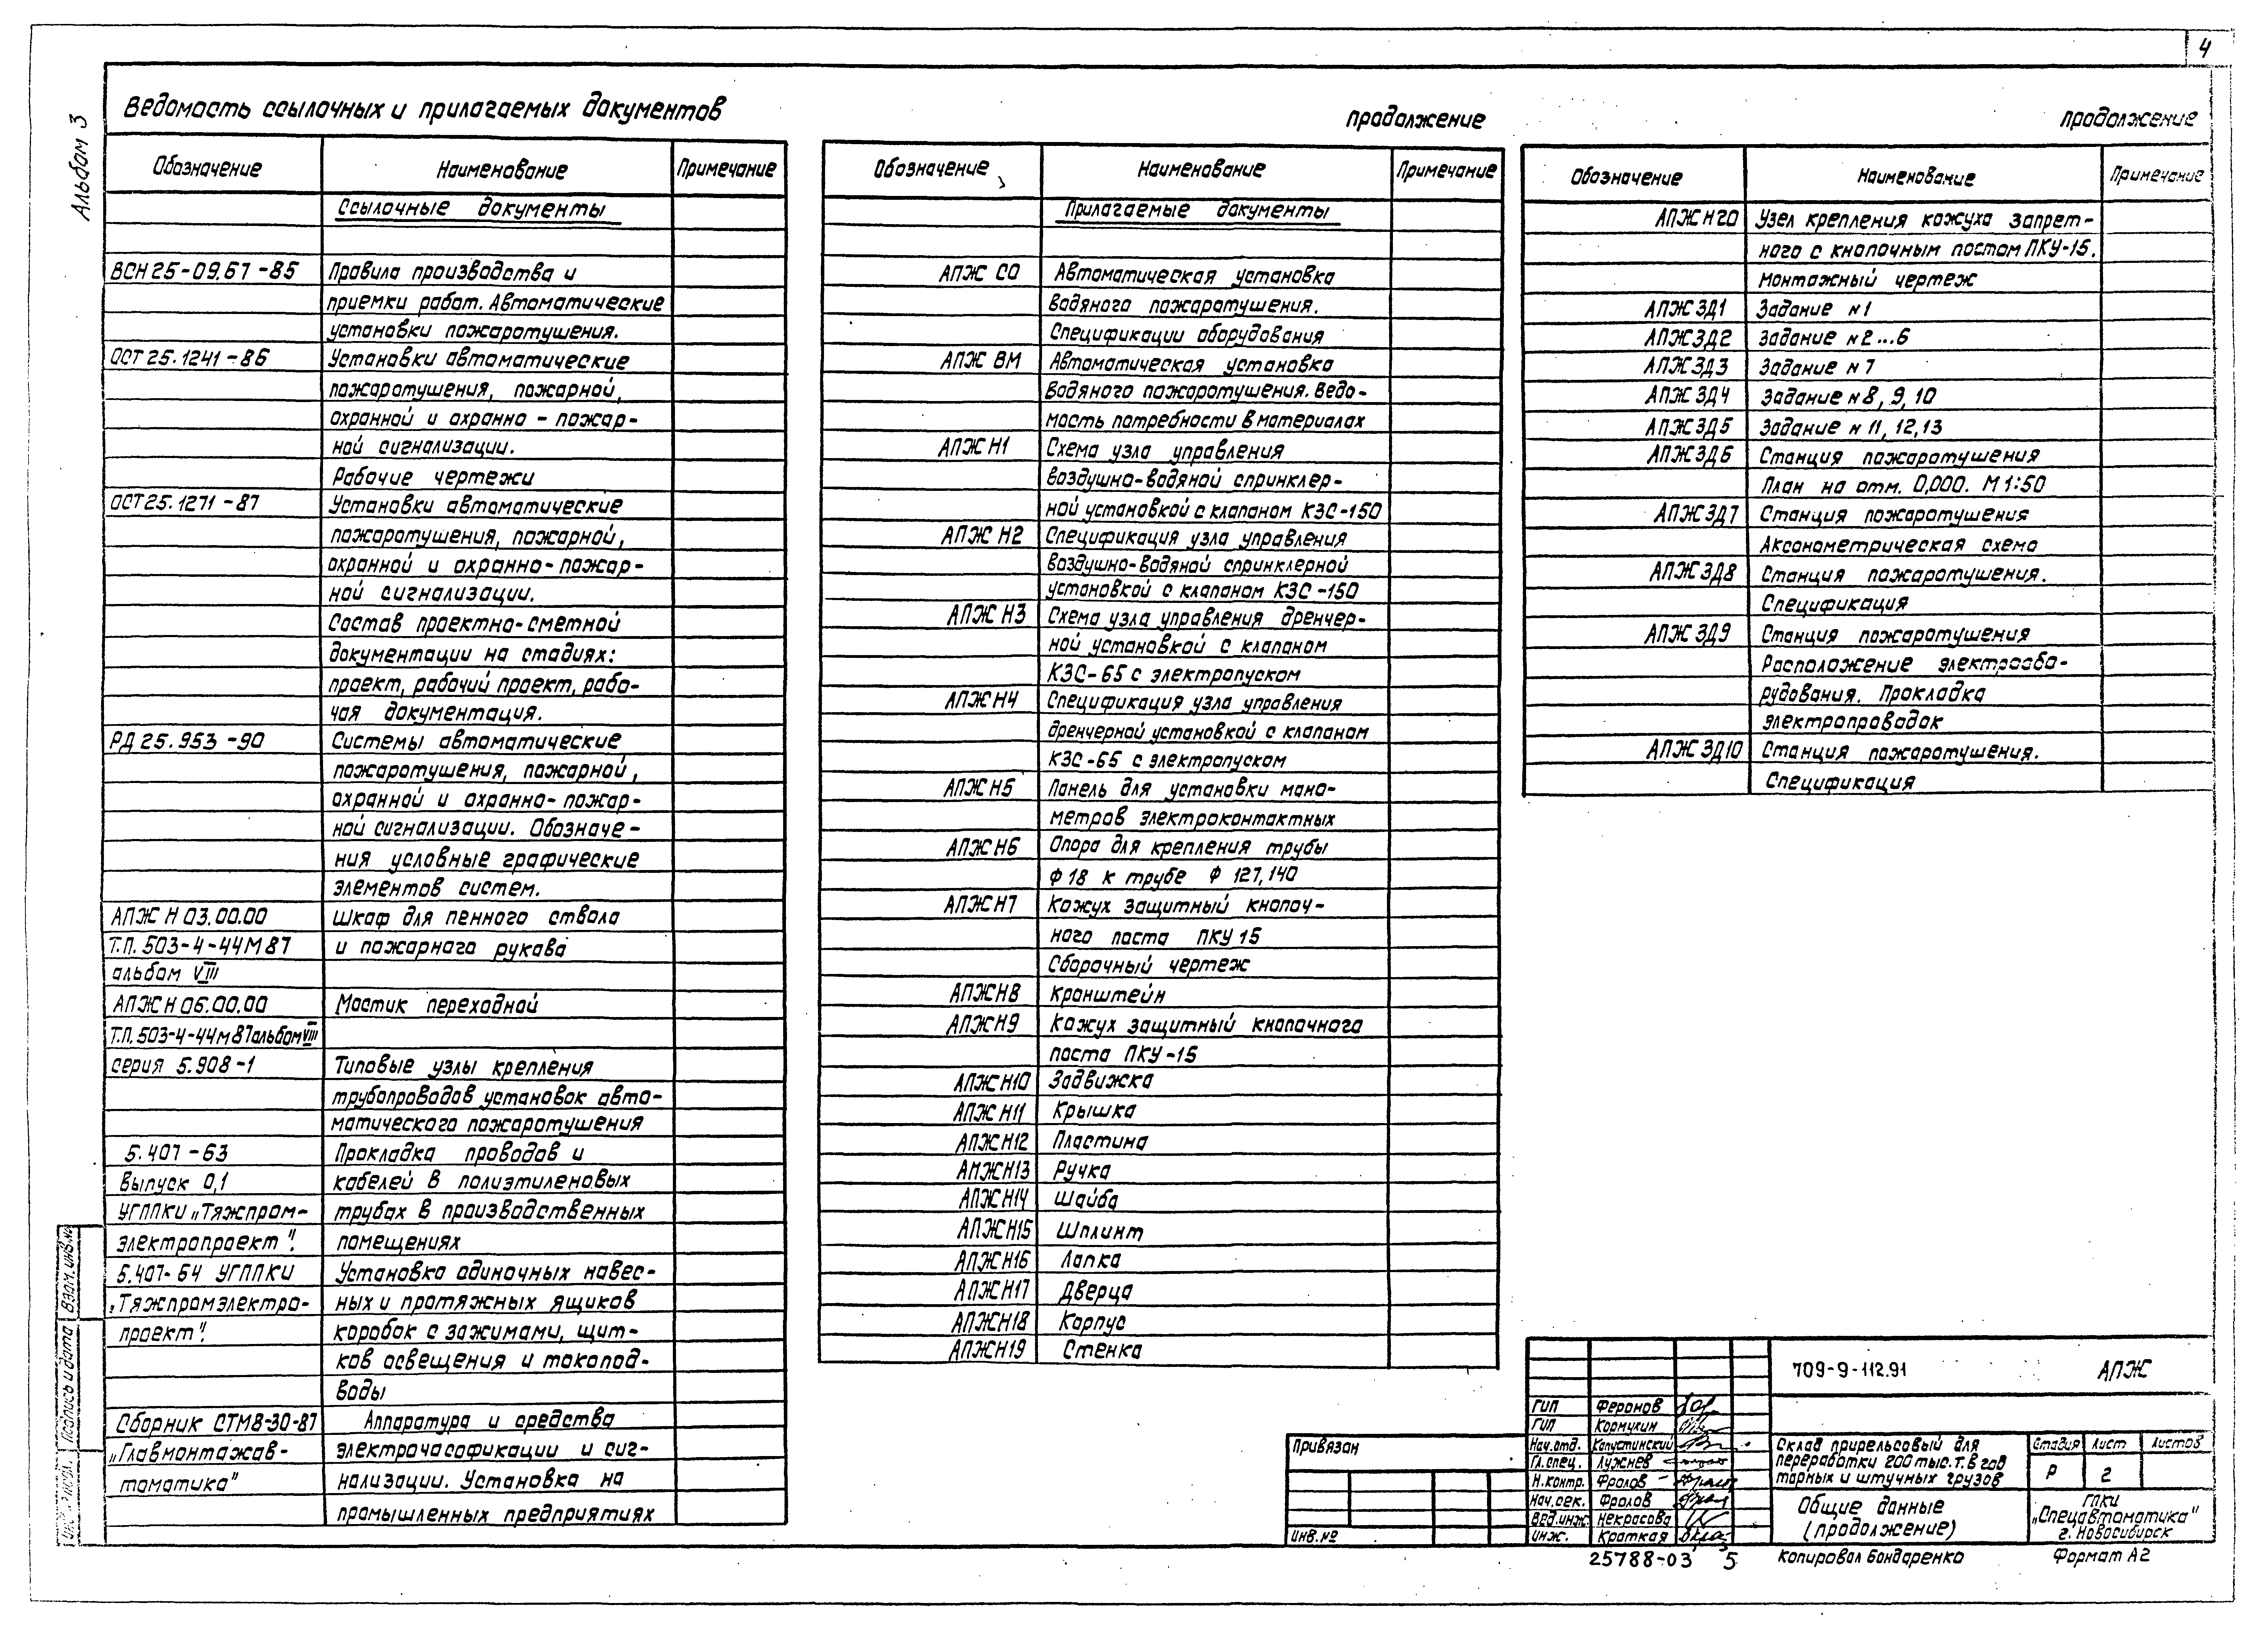 4
Альбом 3
Ведомость ссылочных и прилагаемых документов
Обозначение Наименование Примечание
Ссылочные документы
ВСН 25-09.67-85 Правила производства и
приемки работ. Автоматические
установки пожаротушения.
ОСТ 25.1241-86 Установки автоматические
пожаротушения, пожарной,
охранной и охранно-пожар-
ной сигнализации.
Рабочие чертежи
ОСТ 25.1271-87 Установки автоматические
пожаротушения, пожарной,
охранной и охранно-пожар-
ной сигнализации.
Состав проектно-сметной
документации на стадиях:
проект, рабочий проект, рабо-
чая документация.
РД 25.953-90 Системы автоматические
пожаротушения, пожарной,
охранной и охранно-пожар-
ной сигнализации. Обозначе-
ния условные графические
элементов систем.
АПЖ Н 03.00.00 Шкаф для пенного ствола
Т.П. 503-4-44М 87 и пожарного рукава
альбом VIII
АПЖ Н 06.00.00 Мостик переходной
Т.П. 503-4-44М 87 альбом VIII
серия 5.908-1 Типовые узлы крепления
трубопроводов установок авто-
матического пожаротушения
5.407-63 Прокладка проводов и
Выпуск 0,1 кабелей в полиэтиленовых
УГППКИ „Тяжпром- трубах в производственных
электропроект". помещениях
5.407-64 УГППКИ Установка одиночных навес-
„Тяжпромэлектро- ных и протяжных ящиков
проект". коробок с зажимами, щит-
ков освещения и токопод-
воды
Сборник СТМ8-30-87 Аппаратура и средства
„Главмонтажав- электрочасофикации и сиг-
томатика" нализации. Установка на
промышленных предприятиях
продолжение
Обозначение Наименование Примечание
Прилагаемые документы
АПЖ СО Автоматическая установка
водяного пожаротушения.
Спецификации оборудования
АПЖ ВМ Автоматическая установка
водяного пожаротушения. Ведо-
мость потребности в материалах
АПЖ Н1 Схема узла управления
воздушно-водяной спринклер-
ной установкой с клапаном КЗС-150
АПЖ Н2 Спецификация узла управления
воздушно-водяной спринклерной
установкой с клапаном КЗС-150
АПЖ Н3 Схема узла управления дренчер-
ной установкой с клапаном
КЗС-65 с электропуском
АПЖ Н4 Спецификация узла управления
дренчерной установкой с клапаном
КЗС-65 с электропуском
АПЖ Н5 Панель для установки мано-
метров электроконтактных
АПЖ Н6 Опора для крепления трубы
Ф 18 к трубе Ф 127,140
АПЖ Н7 Кожух защитный кнопоч-
ного поста ПКУ 15
Сборочный чертеж
АПЖ Н8 Кронштейн
АПЖ Н9 Кожух защитный кнопочного
поста ПКУ-15
АПЖ Н10 Задвижка
АПЖ Н11 Крышка
АПЖ Н12 Пластина
АПЖ Н13 Ручка
АПЖ Н14 Шайба
АПЖ Н15 Шплинт
АПЖ Н16 Лапка
АПЖ Н17 Дверца
АПЖ Н18 Корпус
АПЖ Н19 Стенка
продолжение
Обозначение Наименование Примечание
АПЖ Н20 Узел крепления кожуха запрет-
ного с кнопочным постом ПКУ-15.
Монтажный чертеж
АПЖ ЗД1 Задание н 1
АПЖ ЗД2 Задание н 2...6
АПЖ ЗД3 Задание н 7
АПЖ ЗД4 Задание н 8, 9, 10
АПЖ ЗД5 Задание н 11, 12, 13
АПЖ ЗД6 Станция пожаротушения
План на отм. 0,000. М 1:50
АПЖ ЗД7 Станция пожаротушения
Аксонометрическая схема
АПЖ ЗД8 Станция пожаротушения.
Спецификация
АПЖ ЗД9 Станция пожаротушения
Расположение электрообо-
рудования. Прокладка
электропроводок
АПЖ ЗД10 Станция пожаротушения.
Спецификация
Взам. инв. №
Подпись и дата
Привязан
Инв. №
709-9-112.91 АПЖ
ГИП Феронов
ГИП Кормукин
Нач. отд. Капустинский
Гл. спец. Лужнев
Н. контр. Фролов
Нач. сек. Фролов
Вед. инж. Некрасова
Инж. Краткая
Склад прирельсовый для
переработки 200 тыс. т. в год
тарных и штучных грузов
Стадия Лист Листов
Р 2
Общие данные
(продолжение)
ГПКИ
„Спецавтоматика"
г. Новосибирск
25788-03 5
Копировал Бондаренко
Формат А2